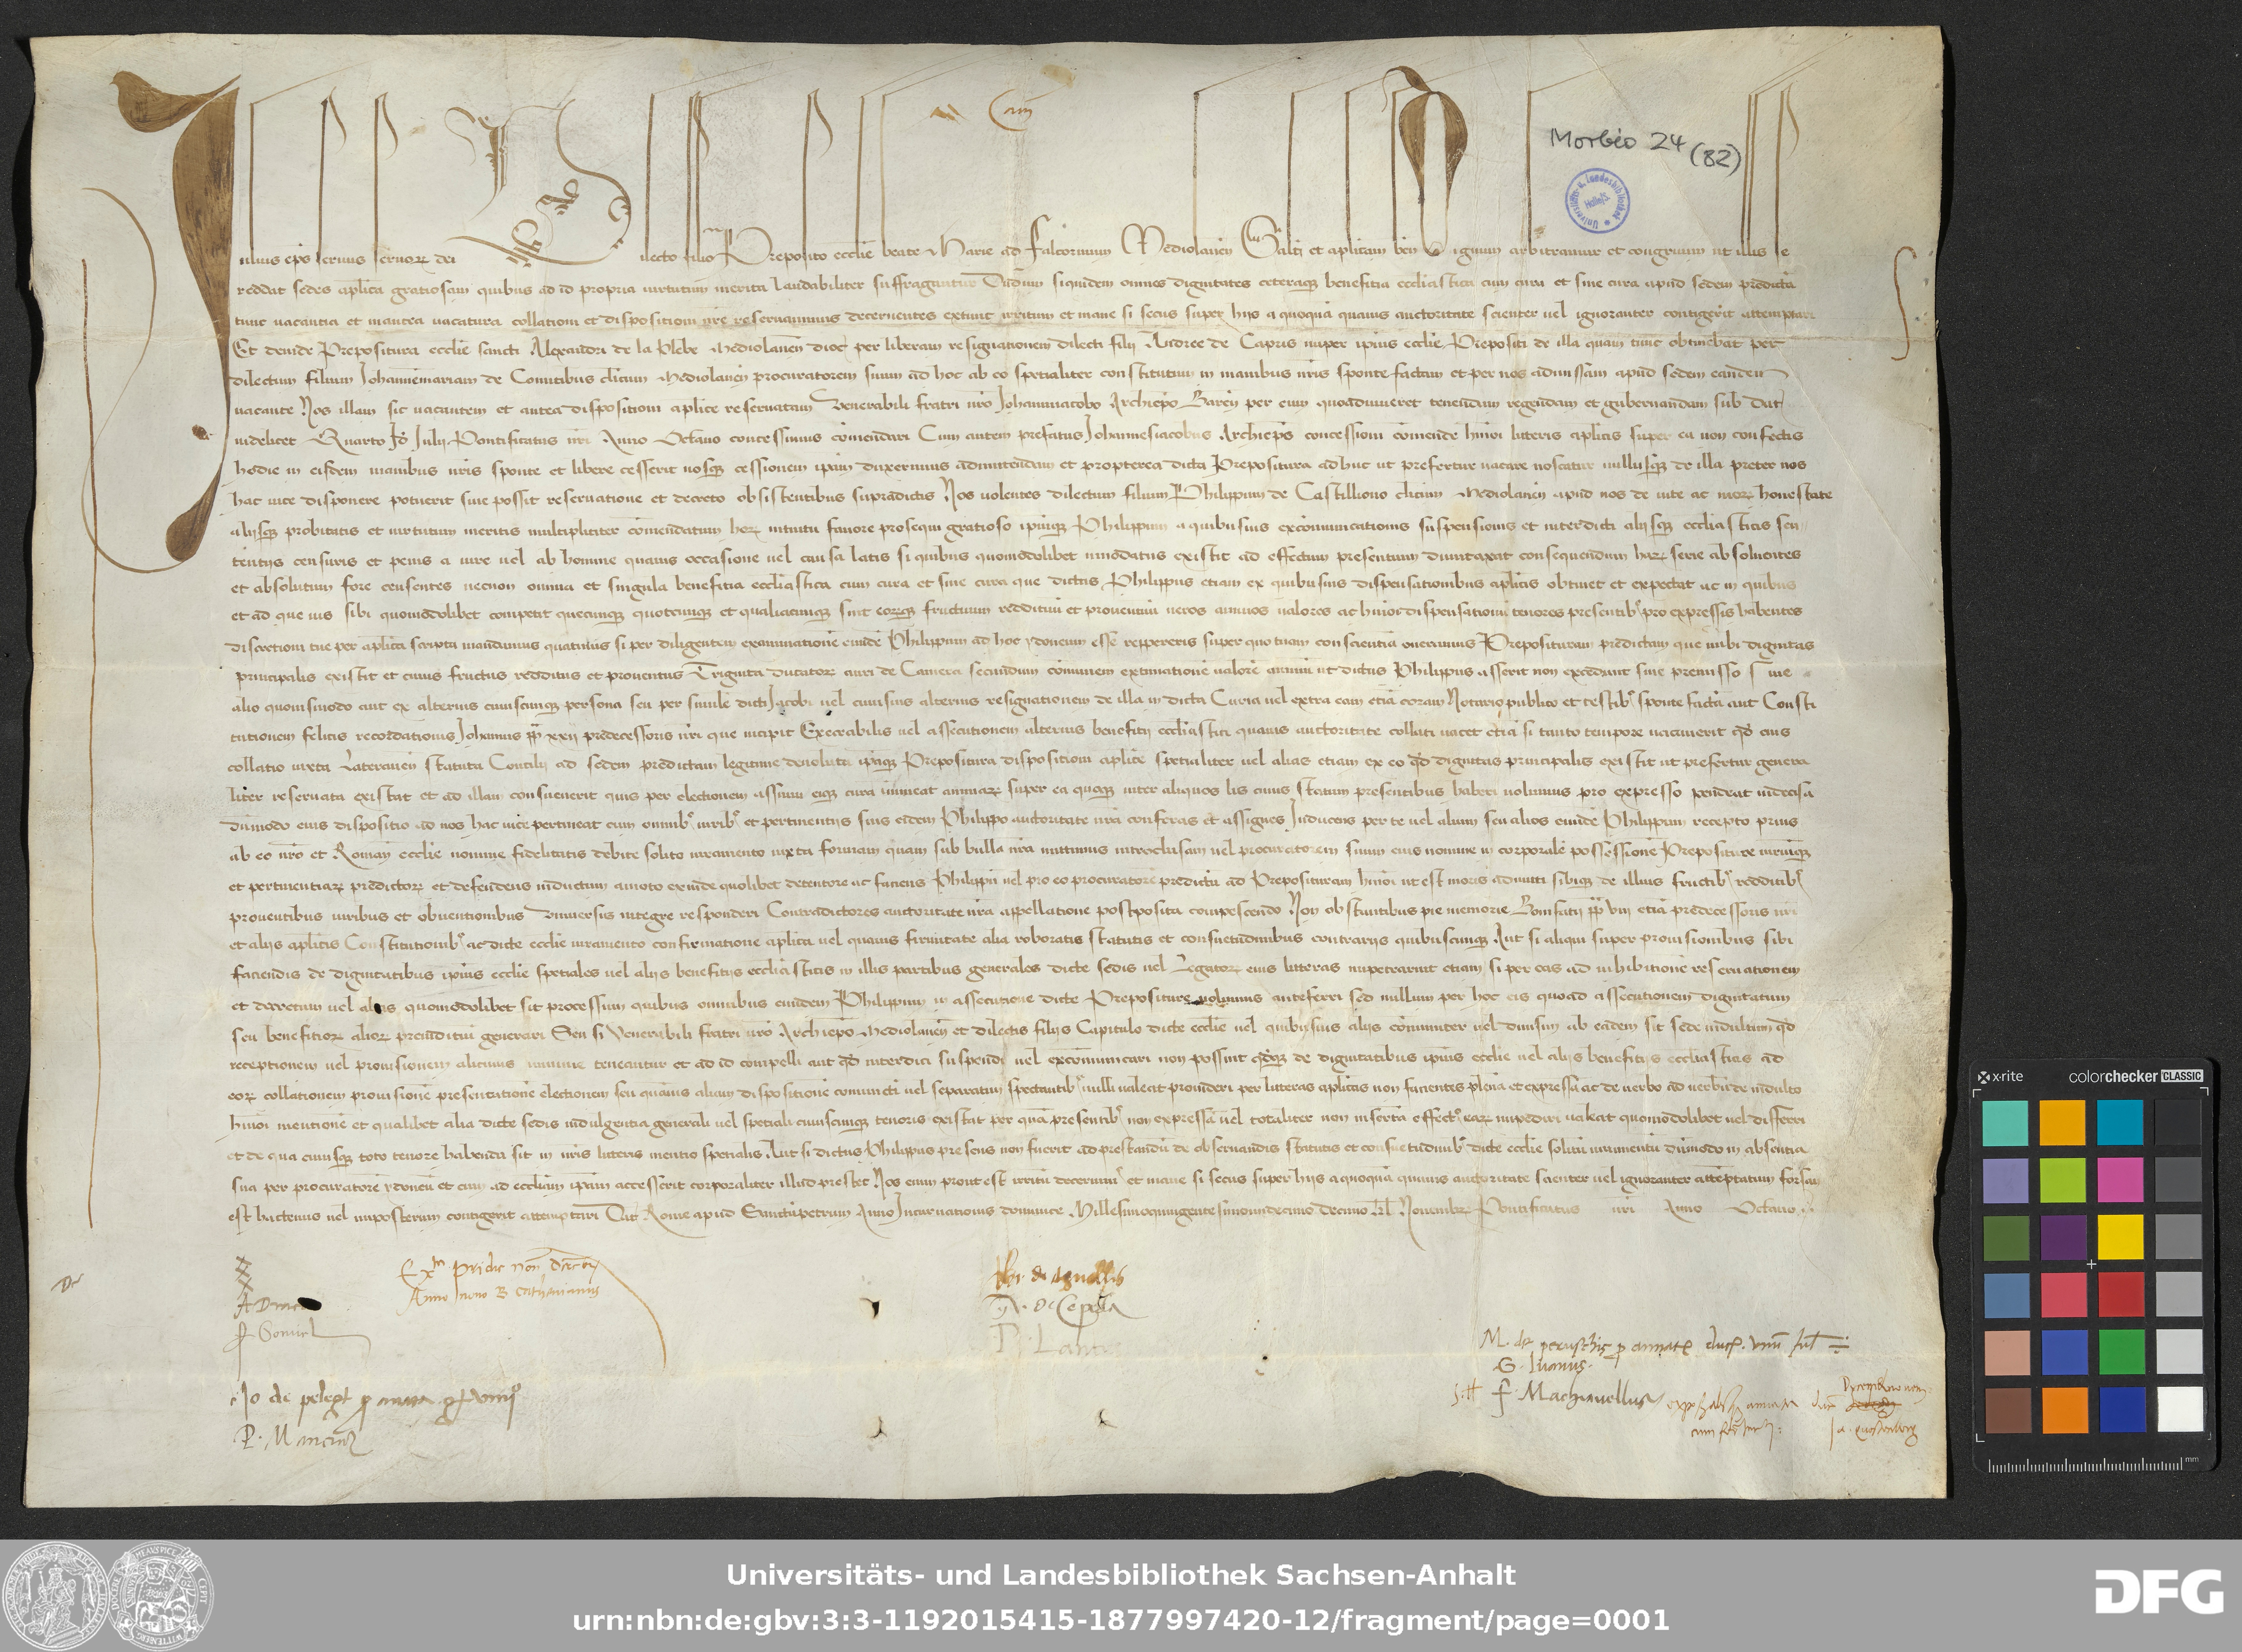 Cam
Morbio 24 (82)
Iulius ep̄s servus servoꝝ dei Dilecto filio Preposito ecclīe beate Marie ad Falcorinum Mediolanēn Saltm̄ et aplicam ben̄ Dignum arbitramur et congruum ut illis se
reddat sedes aplica gratiosam quibus ad id propria virtutum merita laudabiliter suffragantur Dudum siquidem omnes dignitates ceteraqꝫ benefitia eccliastica cum cura et sine cura apud sedem predictā
tunc vacantia et inantea vacatura collationi et dispositioni nr̄e reservavimus decernentes extunc irritum et inane si secus super hijs a quoquā quavis auctoritate scienter vel ignoranter contigerit attemptari
Et deinde Prepositura ecclīe sancti Alexandri de la Plebe Mediolanēn dioc̄ per liberam resignationem dilecti filij Andree de Capris nuper ipsius ecclīe Prepositi de illa quam tunc obtinebat per
dilectum filium Johannēmariam de Comitibus cl̄icum Mediolanēn procuratorem suum ad hoc ab eo spetialiter constitutum in manibus nr̄is sponte factam et per nos admissam apud sedem eandem
vacante Nos illam sic vacantem et antea dispositioni aplice reservatam Venerabili fratri nr̄o Johanniiacobo Archiep̄o Barēn per eum quoadviveret tenendam regendam et gubernandam sub dat̄
videlicet Quarto Id̄ Julij Pontificatus nr̄i Anno Octavo concessimus cōmendari Cum autem prefatus Johannesiacobus Archiep̄s concessioni cōmende hm̄oi litteris aplicis super ea non confectis
hodie in eisdem manibus nr̄is sponte et libere cesserit nosqꝫ cessionem ipsam duxerimus admittendam et propterea dicta Prepositura adhuc ut prefertur vacare noscatur nullusqꝫ de illa preter nos
hac vice disponere potuerit sive possit reservatione et decreto obsistentibus supradictis Nos volentes dilectum filium Philippum de Castilliono cl̄icum Mediolanēn apud nos de vite ac moꝝ honestate
alijsqꝫ probitatis et virtutum meritis multipliciter cōmendatum hoꝝ intuitu favore prosequi gratioso ipsumqꝫ Philippum a quibusvis excōmunicationis suspensionis et interdicti alijsqꝫ eccliasticis sen
tentijs censuris et penis a iure vel ab homine quavis occasione vel causa latis si quibus quomodolibet innodatus existit ad effectum presentium dumtaxat consequendum haꝝ serie absolventes
et absolutum fore censentes necnon omnia et singula benefitia eccliastica cum cura et sine cura que dictus Philippus etiam ex quibusvis dispensationibus aplicis obtinet et expectat ac in quibus
et ad que ius sibi quomodolibet competit quecumqꝫ quotcumqꝫ et qualiacumqꝫ sint eorqꝫ fructuum reddituū et proventuū veros annuos valores ac hm̄oi dispensationū tenores presentibꝰ pro expressis habentes
discretioni tue per aplica scripta mandamus quatinus si per diligentem examinationē eundē Philippum ad hoc ydoneum esse reppereris super quo tuam conscientiā oneramus Preposituram predictam que inibi dignitas
principalis existit et cuius fructus redditus et proventus Triginta ducatoꝝ auri de Camera secundum cōmunem extimationē valorē annuū ut dictus Philippus asserit non excedunt sive premisso sive
alio quovismodo aut ex alterius cuiuscumqꝫ persona seu per similē dicti Jacobi vel cuiusvis alterius resignationem de illa in dicta Curia vel extra eam etiā coram Notario publico et testibꝰ sponte factā aut Consti
tutionem felicis recordationis Johannis pp̄ xxij predecessoris nr̄i que incipit Execrabilis vel assecutionem alterius benefitij eccliastici quavis auctoritate collati vacet etiā si tanto tempore vacaverit qd̄ eius
collatio iuxta Lateranēn statuta Concilij ad sedem predictam legitime devoluta ipsaqꝫ Prepositura dispositioni aplice spetialiter vel alias etiam ex eo qd̄ dignitas principalis existit ut prefertur genera
liter reservata existat et ad illam consueverit quis per electionem assumi eiqꝫ cura immineat animaꝝ super ea quoqꝫ inter aliquos lis cuius statum presentibus haberi volumus pro expresso pendeat indecisa
dūmodo eius dispositio ad nos hac vice pertineat cum omnibꝰ iuribꝰ et pertinentijs suis eidem Philippo auctoritate nr̄a conferas et assignes Inducens per te vel alium seu alios eundē Philippum recepto prius
ab eo nr̄o et Romane ecclīe nomine fidelitatis debite solito iuramento iuxta formam quam sub bulla nr̄a mittimus introclusam vel procuratorem suum eius nomine in corporalē possessionē Prepositure iuriumqꝫ
et pertinentiaꝝ predictoꝝ et defendens inductum amoto exinde quolibet detentore ac faciens Philippū vel pro eo procuratorē predictū ad Preposituram hm̄oi ut est moris admitti sibiqꝫ de illius fructibꝰ redditibꝰ
proventibus iuribus et obventionibus Universis integre responderi Contradictores auctoritate nr̄a appellatione postposita compescendo Non obstantibus pie memorie Bonifatij pp̄ viij etiā predecessoris nr̄i
et alijs aplicis Constitutionibꝰ ac dicte ecclīe iuramento confirmatione aplica vel quavis firmitate alia roboratis statutis et consuetudinibus contrarijs quibuscumqꝫ Aut si aliqui super provisionibus sibi
faciendis de dignitatibus ipsius ecclīe spetiales vel alijs benefitijs eccliasticis in illis partibus generales dicte sedis vel Legatoꝝ eius litteras impetrarint etiam si per eas ad inhibitionē reservationem
et decretum vel alias quomodolibet sit processum quibus omnibus eundem Philippum in assecutione dicte Prepositure volumus anteferri sed nullum per hoc eis quoad assecutionem dignitatum
seu benefitioꝝ alioꝝ preiuditiū generari Seu si Venerabili fratri nr̄o Archiep̄o Mediolanēn et dilectis filijs Capitulo dicte ecclīe vel quibusvis alijs cōmuniter vel divisim ab eadem sit sede indultum qd̄
receptionem vel provisionem alicuius minime teneantur et ad id compelli aut qd̄ interdici suspendi vel excōmunicari non possint qd̄qꝫ de dignitatibus ipsius ecclīe vel alijs benefitijs eccliasticis ad
eoꝝ collationem provisionē presentationē electionem seu quāvis aliam dispositionē coniuncti vel separatim spectantibꝰ nulli valeat provideri per litteras aplicas non facientes plenā et expressā ac de verbo ad verbū de indulto
hm̄oi mentionē et qualibet alia dicte sedis indulgentia generali vel spetiali cuiuscumqꝫ tenoris existat per quā presentibꝰ non expressā vel totaliter non insertā effectꝰ eaꝝ impediri valeat quomodolibet vel differri
et de qua cuiusqꝫ toto tenore habenda sit in nr̄is litteris mentio spetialis Aut si dictus Philippus presens non fuerit ad prestandū de observandis statutis et consuetudinibꝰ dicte ecclīe solitū iuramentū dūmodo in absentia
sua per procuratorē ydoneū et cum ad eccliam ipsam accesserit corporaliter illud prestet Nos enim prout est irritū decernimꝰ et inane si secus super hijs a quoquā quavis auctoritate scienter vel ignoranter attēptatum forsan
est hactenus vel imposterum contigerit attemptari Dat̄ Rome apud Sanctūpetrum Anno Incarnationis dominice Millesimoquingentesimoundecimo decimo kl̄ Novembr̄ Pontificatus nr̄i Anno Octavo
Exp̄ pridie non̄ Decembr̄
Anno nono
M. de peruschis
F. Machiavellus
Universitäts- und Landesbibliothek Sachsen-Anhalt
urn:nbn:de:gbv:3:3-1192015415-1877997420-12/fragment/page=0001
DFG
x-rite
colorchecker CLASSIC
mm